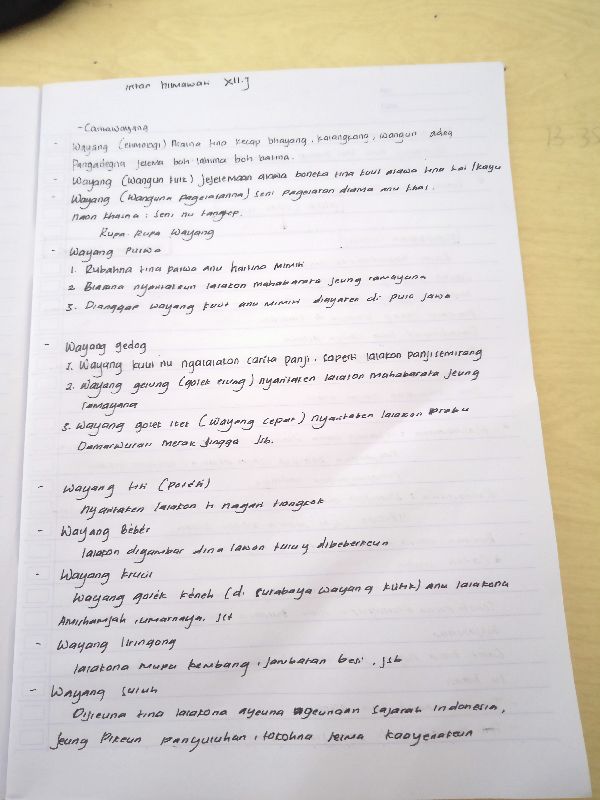 Intan Himawan XII.J
- Caritawayang
- Wayang (etimologi) Asalna tina kecap bhayang, kalangkang, wangun adeg
Pangadegna jelema boh lahirna boh batina.
- Wayang (wangun fisik) jejelemaan atawa boneka tina kulit atawa tina kai / kayu
- Wayang (wanguna pagelaranna) seni pagelaran drama anu khas.
naon khasna : seni nu tangtep.
Rupa-Rupa Wayang
- Wayang Purwa
1. Rubahna tina parwa anu hartina mimiti
2. Biasana nyaritakeun lalakon mahabarata jeung ramayana
3. Dianggap wayang kulit anu mimiti diayaken di pulo jawa
- Wayang gedog
1. Wayang kulit nu ngalalakon carita panji. saperti lalakon panji semirang
2. Wayang gelung (golek elung) nyaritaken lalakon mahabarata jeung
ramayana
3. Wayang golek itet (Wayang cepak) nyaritaken lalakon prabu
Damarwulan merak jingga jsb.
- Wayang titi (potehi)
nyaritaken lalakon ti nagari tiongkok
- Wayang Bébér
lalakon digambar dina lawon tuluy dibeberkeun
- Wayang krucil
Wayang golék kéneh (di surabaya wayang klitik) anu lalakona
Amirhamjah, umarmaya. jst
- Wayang liringong
lalakona mupu kembang, jambatan besi, jsb
- Wayang suluh
Dijieuna tina lalakona ayeuna ngeunaan sajarah indonesia,
jeung pikeun panyuluhan, tokohna jelma kaayenakeun